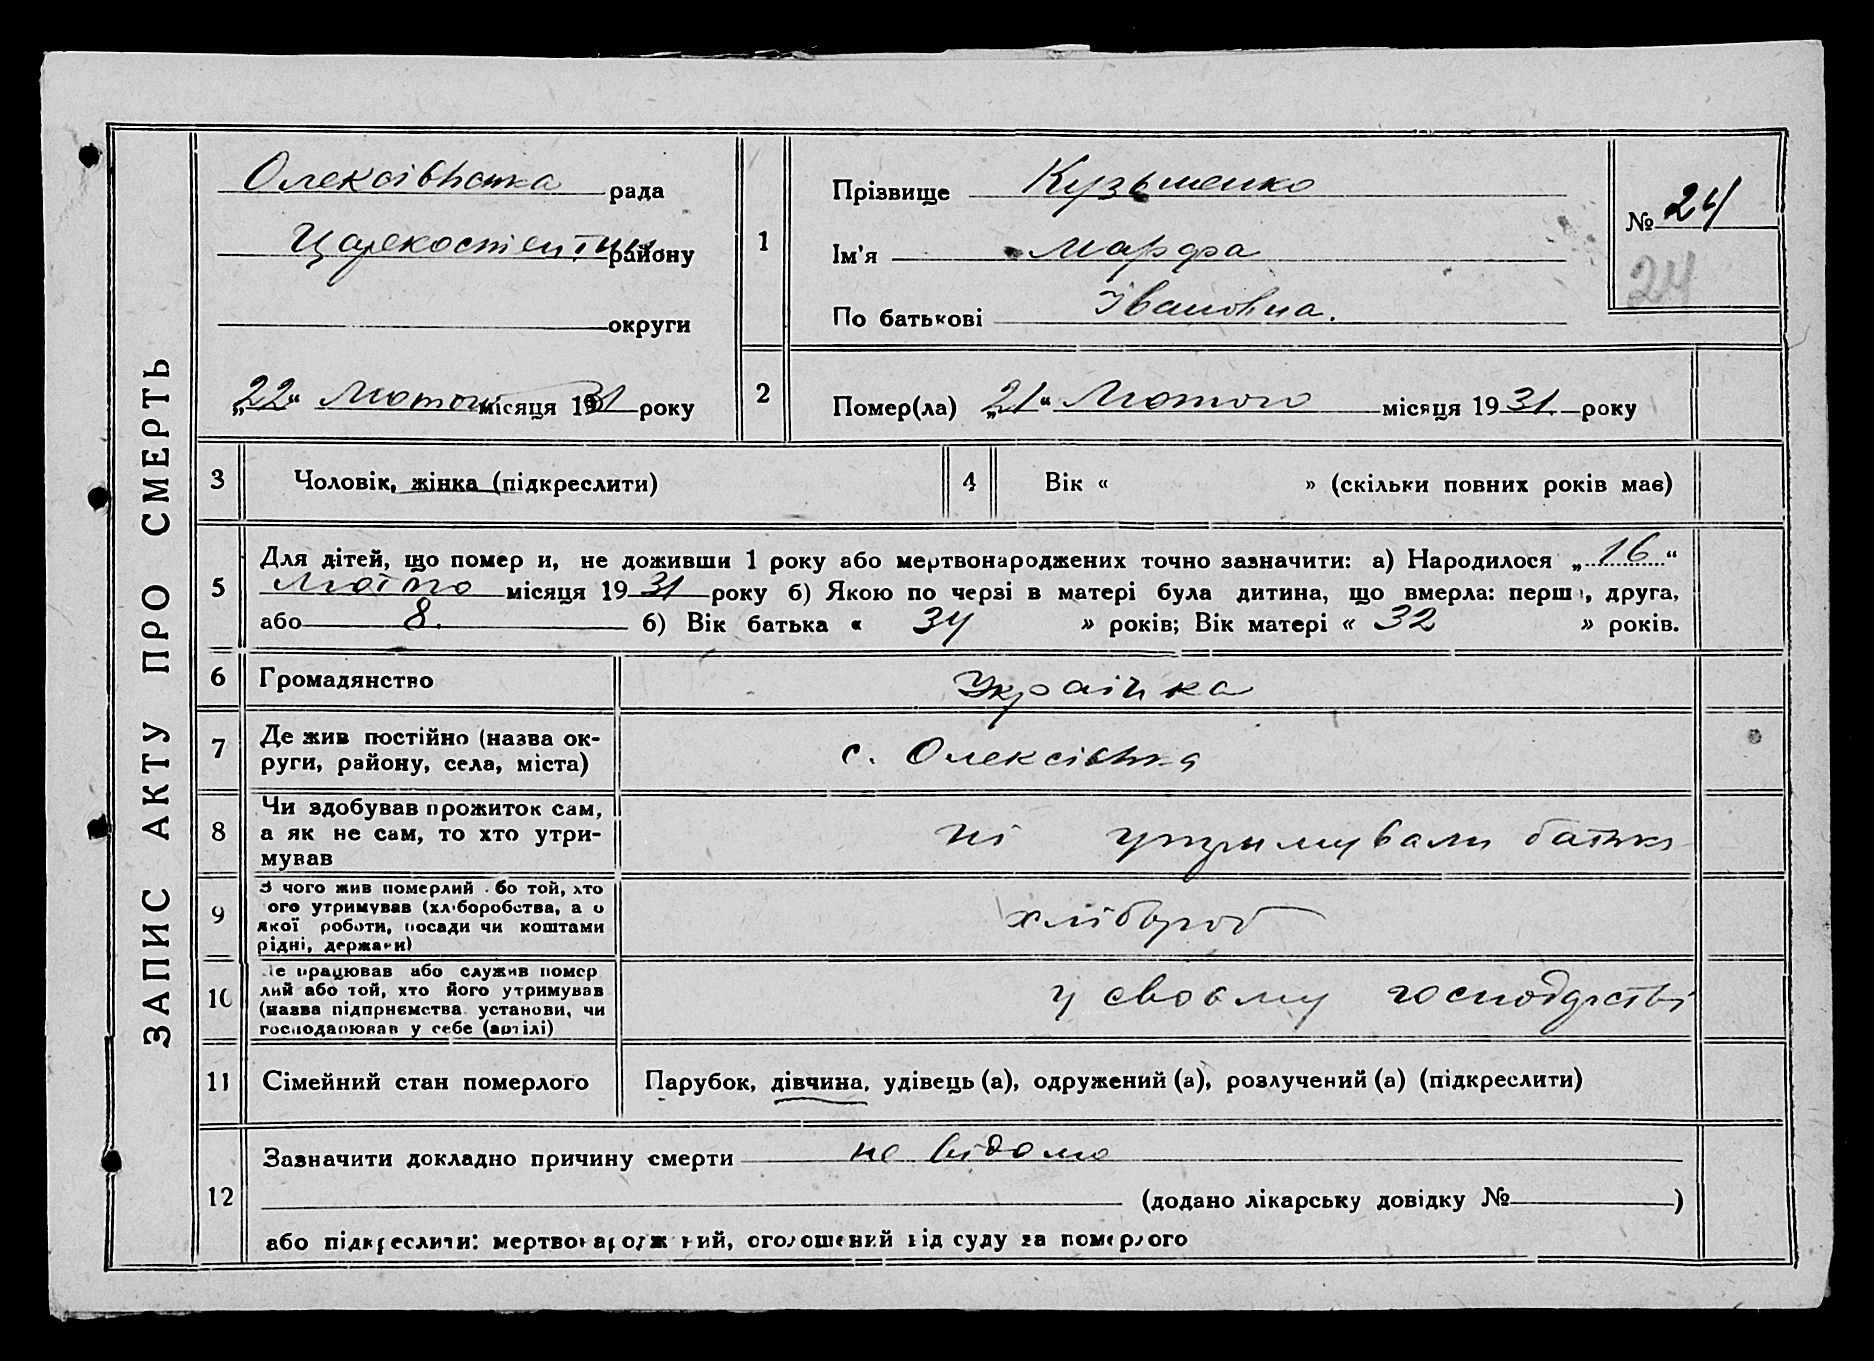 ЗАПИС АКТУ ПРО СМЕРТЬ
Олексівська рада
району
округи
„22“ Лютого місяця 1931 року
1
Прізвище Кузьменко
Ім'я Марфа
По батькові Івановна.
№ 24
24
2
Помер(ла) „21“ Лютого місяця 1931 року
3
Чоловік, жінка (підкреслити)
4
Вік « » (скільки повних років має)
5
Для дітей, що помер и, не доживши 1 року або мертвонароджених точно зазначити: а) Народилося „16“
Лютого місяця 1931 року б) Якою по черзі в матері була дитина, що вмерла: перш , друга,
або 8. б) Вік батька « 34 » років; Вік матері « 32 » років.
6
Громадянство
Українка
7
Де жив постійно (назва ок-
руги, району, села, міста)
с. Олексівка
8
Чи здобував прожиток сам,
а як не сам, то хто утри-
мував
ні утримували батьки
9
З чого жив померлий бо той, хто
ого утримував (хліборобства, а о
якої роботи, посади чи коштами
рідні, держави)
хлібороб
10
Де працював або служив помер
лий або той, хто його утримував
(назва підприємства установи, чи
господарював у себе (артілі)
у своєму господарстві
11
Сімейний стан померлого
Парубок, дівчина, удівець (а), одружений (а), розлучений (а) (підкреслити)
12
Зазначити докладно причину смерти не відомо
(додано лікарську довідку № )
або підкреслити: мертвонароджений, оголошений від суду за померлого